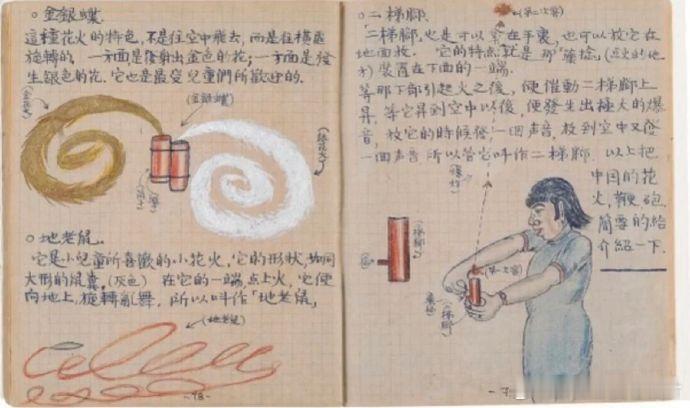 ○ 金銀蝶.
這種花火的特色,不是往空中飛去,而是往橫處
旋轉的. 一方面是發射出金色的花;一方面是發
生銀色的花.它也是最受兒童們所歡迎的.
(金銀蝶)
○ 地老鼠.
它是小兒童所喜歡的小花火,它的形狀,如同
大形的鼠糞.(灰色) 在它的一端点上火,它便
向地上,旋轉亂舞, 所以叫作「地老鼠」
(地老鼠)
-78-
○ 二梯腳.
二梯腳,也是可以拿在手裏,也可以放它在
地面放. 它的特点就是那"藥捻"(点火的地
方)裝置在下面的一端.
等那下部引起火之後,便催動二梯腳上
昇.等它昇到空中以後,便發生出極大的爆
音,放它的時候發一個声音,放到空中又發
一個声音所以管它叫作二梯腳. 以上把
中国的花
火,鞭砲,
簡要的給
介紹一下.
(二梯腳)
-7